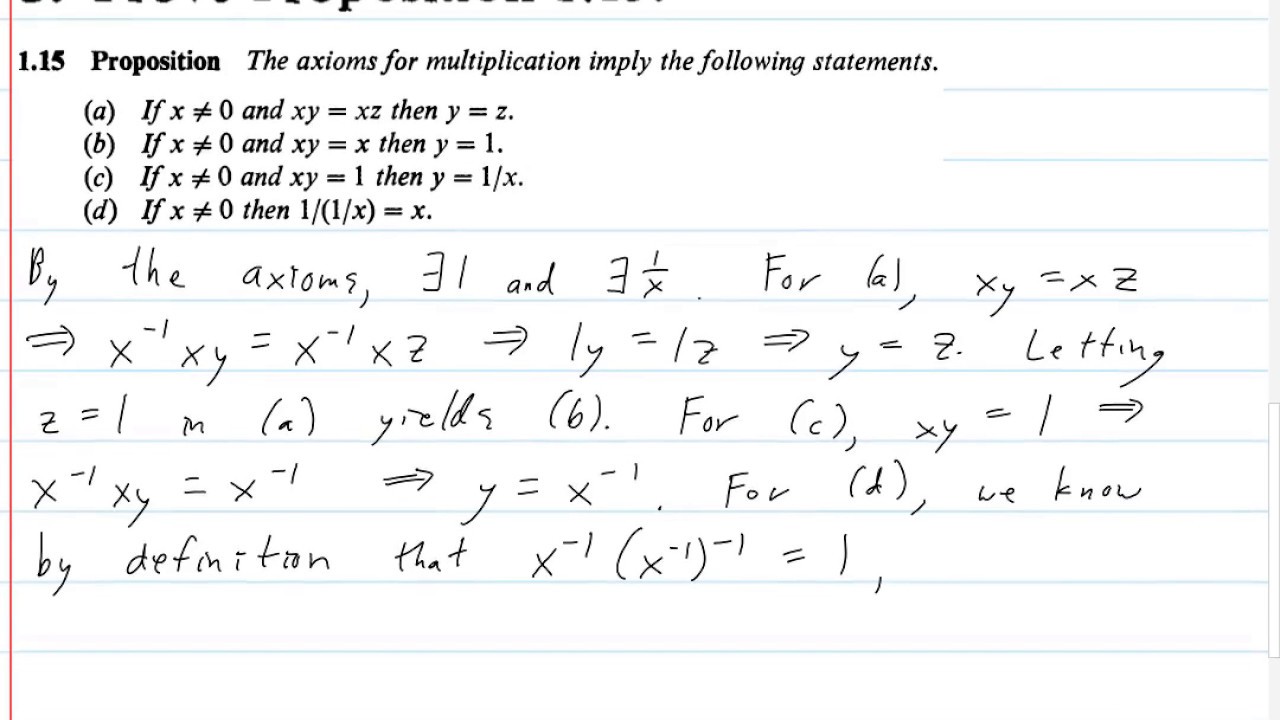 1.15 Proposition The axioms for multiplication imply the following statements.
(a) If x ≠ 0 and xy = xz then y = z.
(b) If x ≠ 0 and xy = x then y = 1.
(c) If x ≠ 0 and xy = 1 then y = 1/x.
(d) If x ≠ 0 then 1/(1/x) = x.
By the axioms, ∃1 and ∃ 1/x. For (a), xy = xz
⇒ x⁻¹xy = x⁻¹xz ⇒ 1y = 1z ⇒ y = z. Letting
z = 1 in (a) yields (b). For (c), xy = 1 ⇒
x⁻¹xy = x⁻¹ ⇒ y = x⁻¹. For (d), we know
by definition that x⁻¹(x⁻¹)⁻¹ = 1,